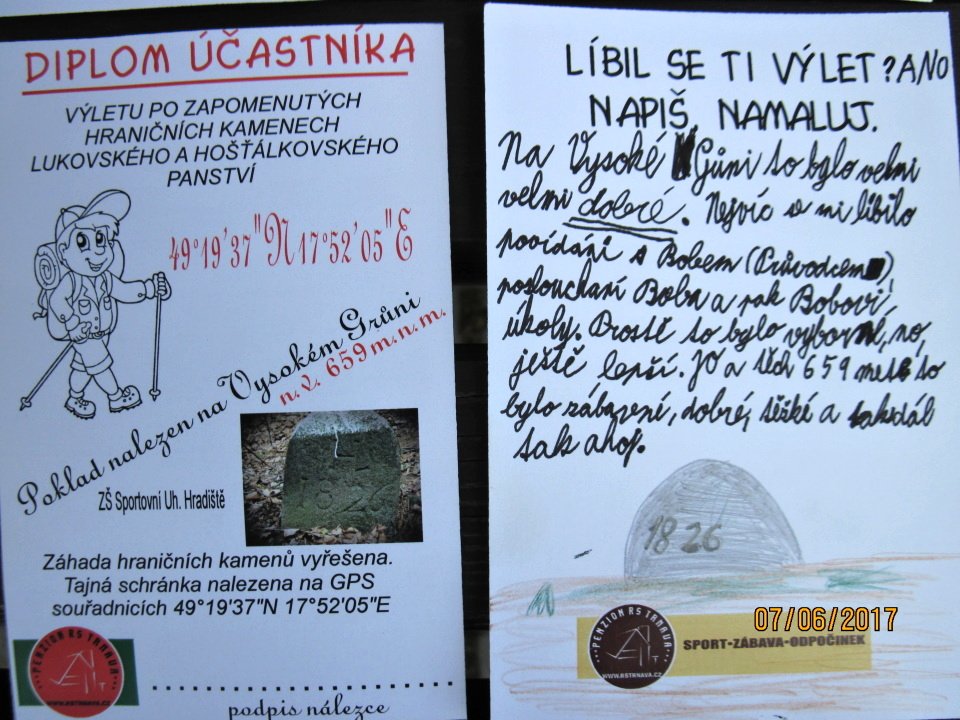 DIPLOM ÚČASTNÍKA
VÝLETU PO ZAPOMENUTÝCH
HRANIČNÍCH KAMENECH
LUKOVSKÉHO A HOŠŤÁLKOVSKÉHO
PANSTVÍ
49°19'37"N 17°52'05"E
Poklad nalezen na Vysokém Grůni
n.v. 659 m.n.m.
L
1826
ZŠ Sportovní Uh. Hradiště
Záhada hraničních kamenů vyřešena.
Tajná schránka nalezena na GPS
souřadnicích 49°19'37"N 17°52'05"E
PENZION RS TRNAVA
WWW.RSTRNAVA.CZ
podpis nálezce
LÍBIL SE TI VÝLET? ANO
NAPIŠ, NAMALUJ.
Na Vysoké Gůni to bylo velmi
velmi dobré. Nejvíc se mi líbilo
povídání s Bobem (Průvodcem)
poslouchaní Boba a pak Bobovi
úkoly. Prostě to bylo výborné, no,
ještě lepší. JO a těch 659 metrů to
bylo zábavní, dobré, těžké a takdál
tak ahoj.
1826
07/06/2017
PENZION RS TRNAVA
WWW.RSTRNAVA.CZ
SPORT-ZÁBAVA-ODPOČINEK